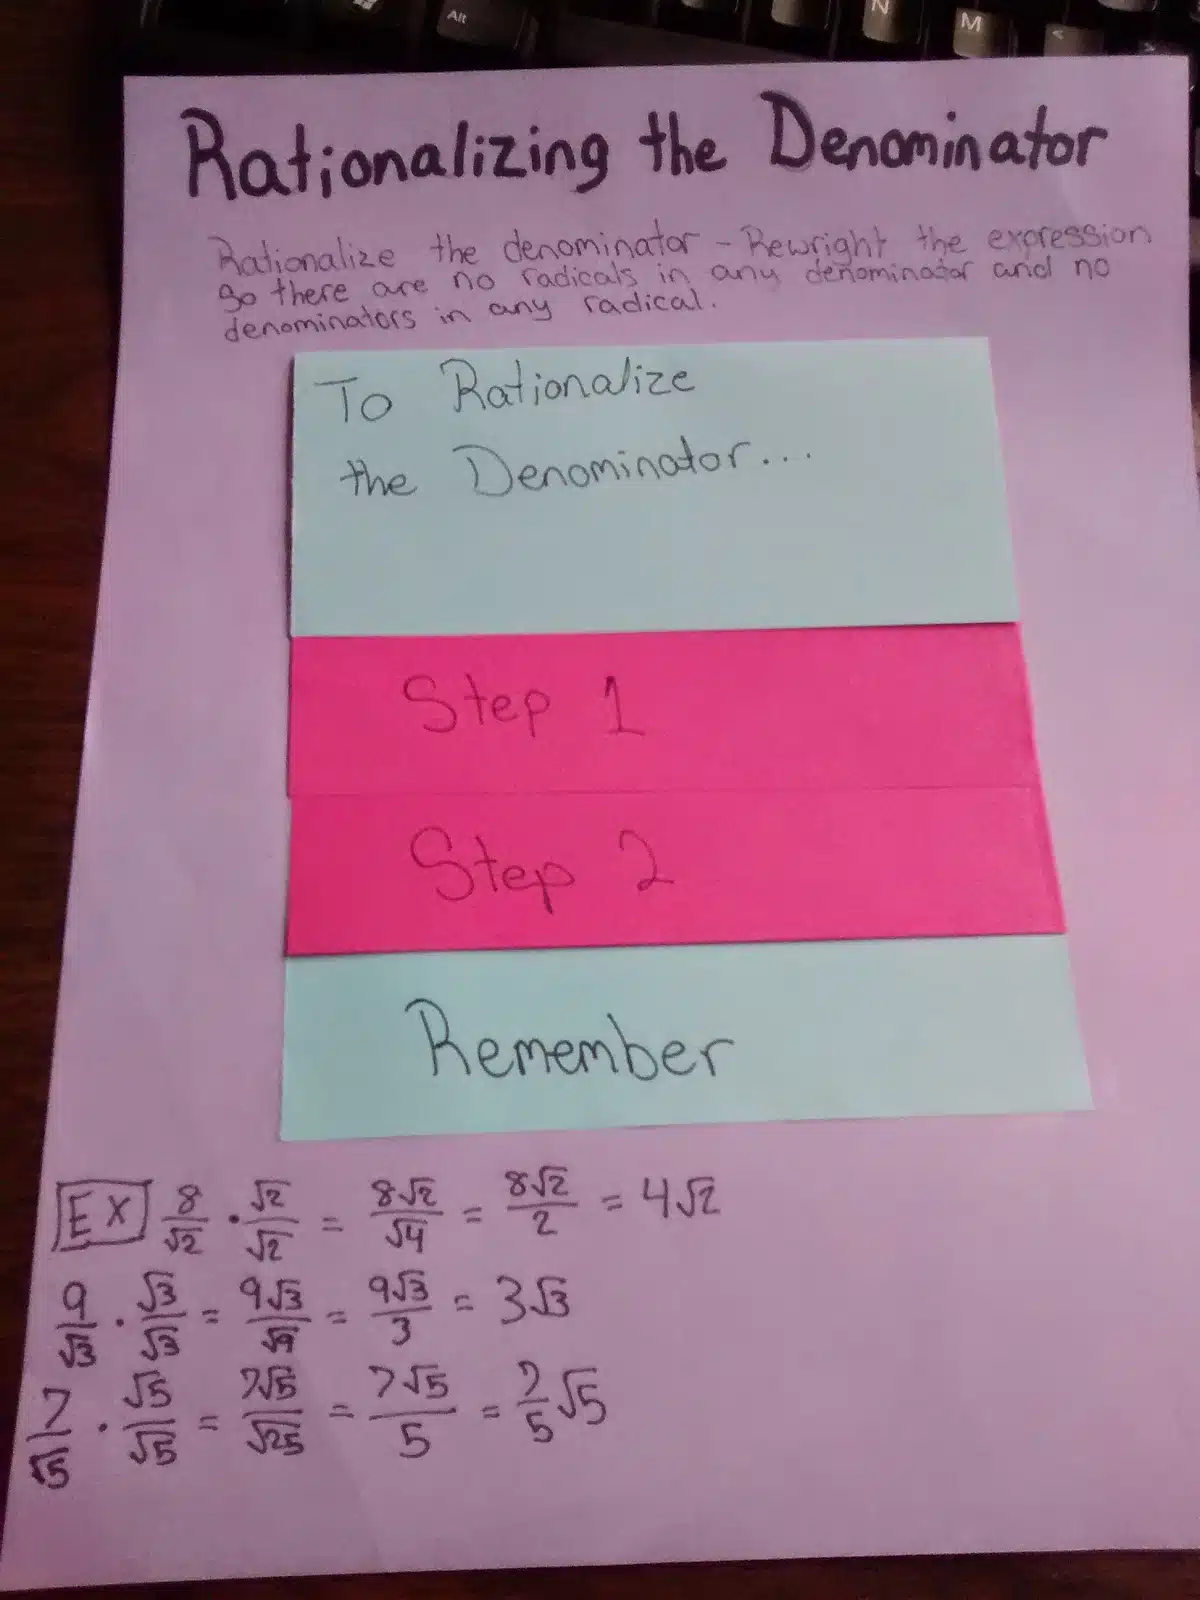 Alt
N
M
<
>
Rationalizing the Denominator
Rationalize the denominator - Rewright the expression
so there are no radicals in any denominator and no
denominators in any radical.
To Rationalize
the Denominator...
Step 1
Step 2
Remember
EX 8/√2 · √2/√2 = 8√2/√4 = 8√2/2 = 4√2
9/√3 · √3/√3 = 9√3/√9 = 9√3/3 = 3√3
7/√5 · √5/√5 = 7√5/√25 = 7√5/5 = 7/5 √5